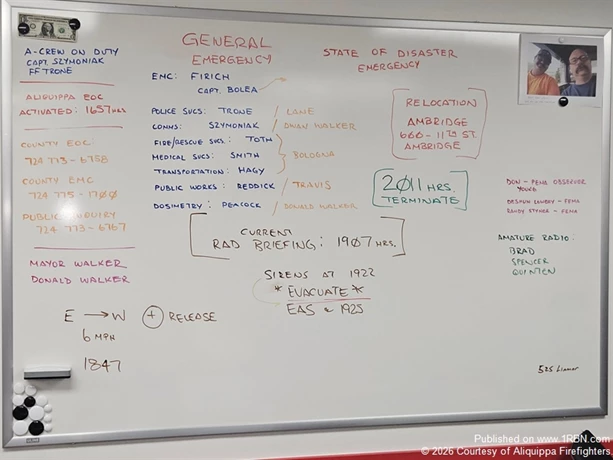 A-CREW ON DUTY
CAPT. SZYMONIAK
FF TRONE
ALIQUIPPA EOC
ACTIVATED: 1657 HRS.
COUNTY EOC
724 773-6768
COUNTY EMC
724 775-1700
PUBLIC INQUIRY
724 773-6767
MAYOR WALKER
DONALD WALKER
E → W
6 MPH
1847
+ RELEASE
GENERAL
EMERGENCY
EMC: FIRICH
CAPT. BOLEA
POLICE SVCS: TRONE / LANE
COMMS: SZYMONIAK / DWAN WALKER
FIRE/RESCUE SVCS: TOTH
MEDICAL SVCS: SMITH
TRANSPORTATION: HAGY
BOLOGNA
PUBLIC WORKS: REDDICK / TRAVIS
DOSIMETRY: PEACOCK / DONALD WALKER
CURRENT
RAD BRIEFING: 1907 HRS.
SIRENS AT 1922
* EVACUATE *
EAS @ 1925
STATE OF DISASTER
EMERGENCY
RELOCATION
AMBRIDGE
600-11TH ST.
AMBRIDGE
2011 HRS.
TERMINATE
DON - FEMA OBSERVER
- FEMA
RANDY - FEMA
AMATURE RADIO:
BRAD
SPENCER
QUINTEN
525
Published on www.1RBN.com
© 2026 Courtesy of Aliquippa Firefighters